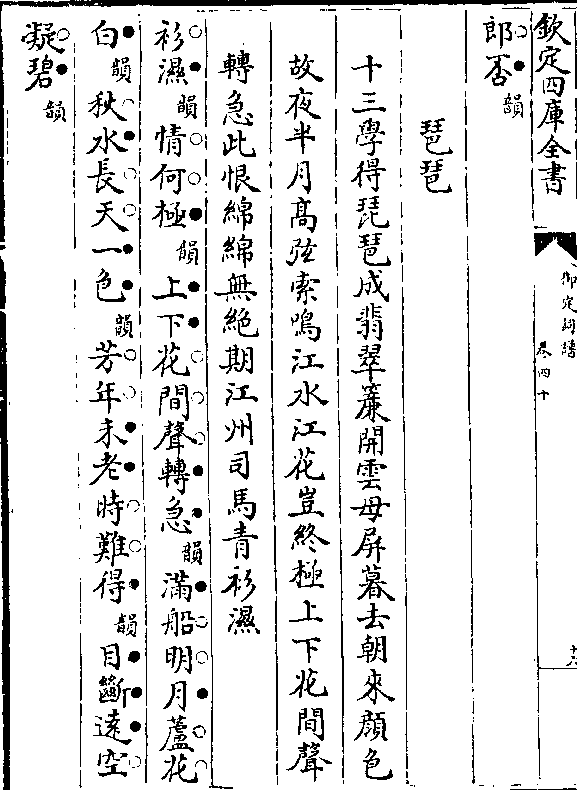 欽定四庫全書
御定詞譜
卷四十
十六
郎否韻
琵琶
十三學得琵琶成翡翠簾開雲母屏暮去朝來顔色
故夜半月髙弦索鳴江水江花豈終極上下花間聲
轉急此恨綿綿無絶期江州司馬青衫濕
衫濕韻情何極韻上下花間聲轉急韻滿船明月蘆花
白韻秋水長天一色韻芳年未老時難得韻目斷遠空
凝碧韻